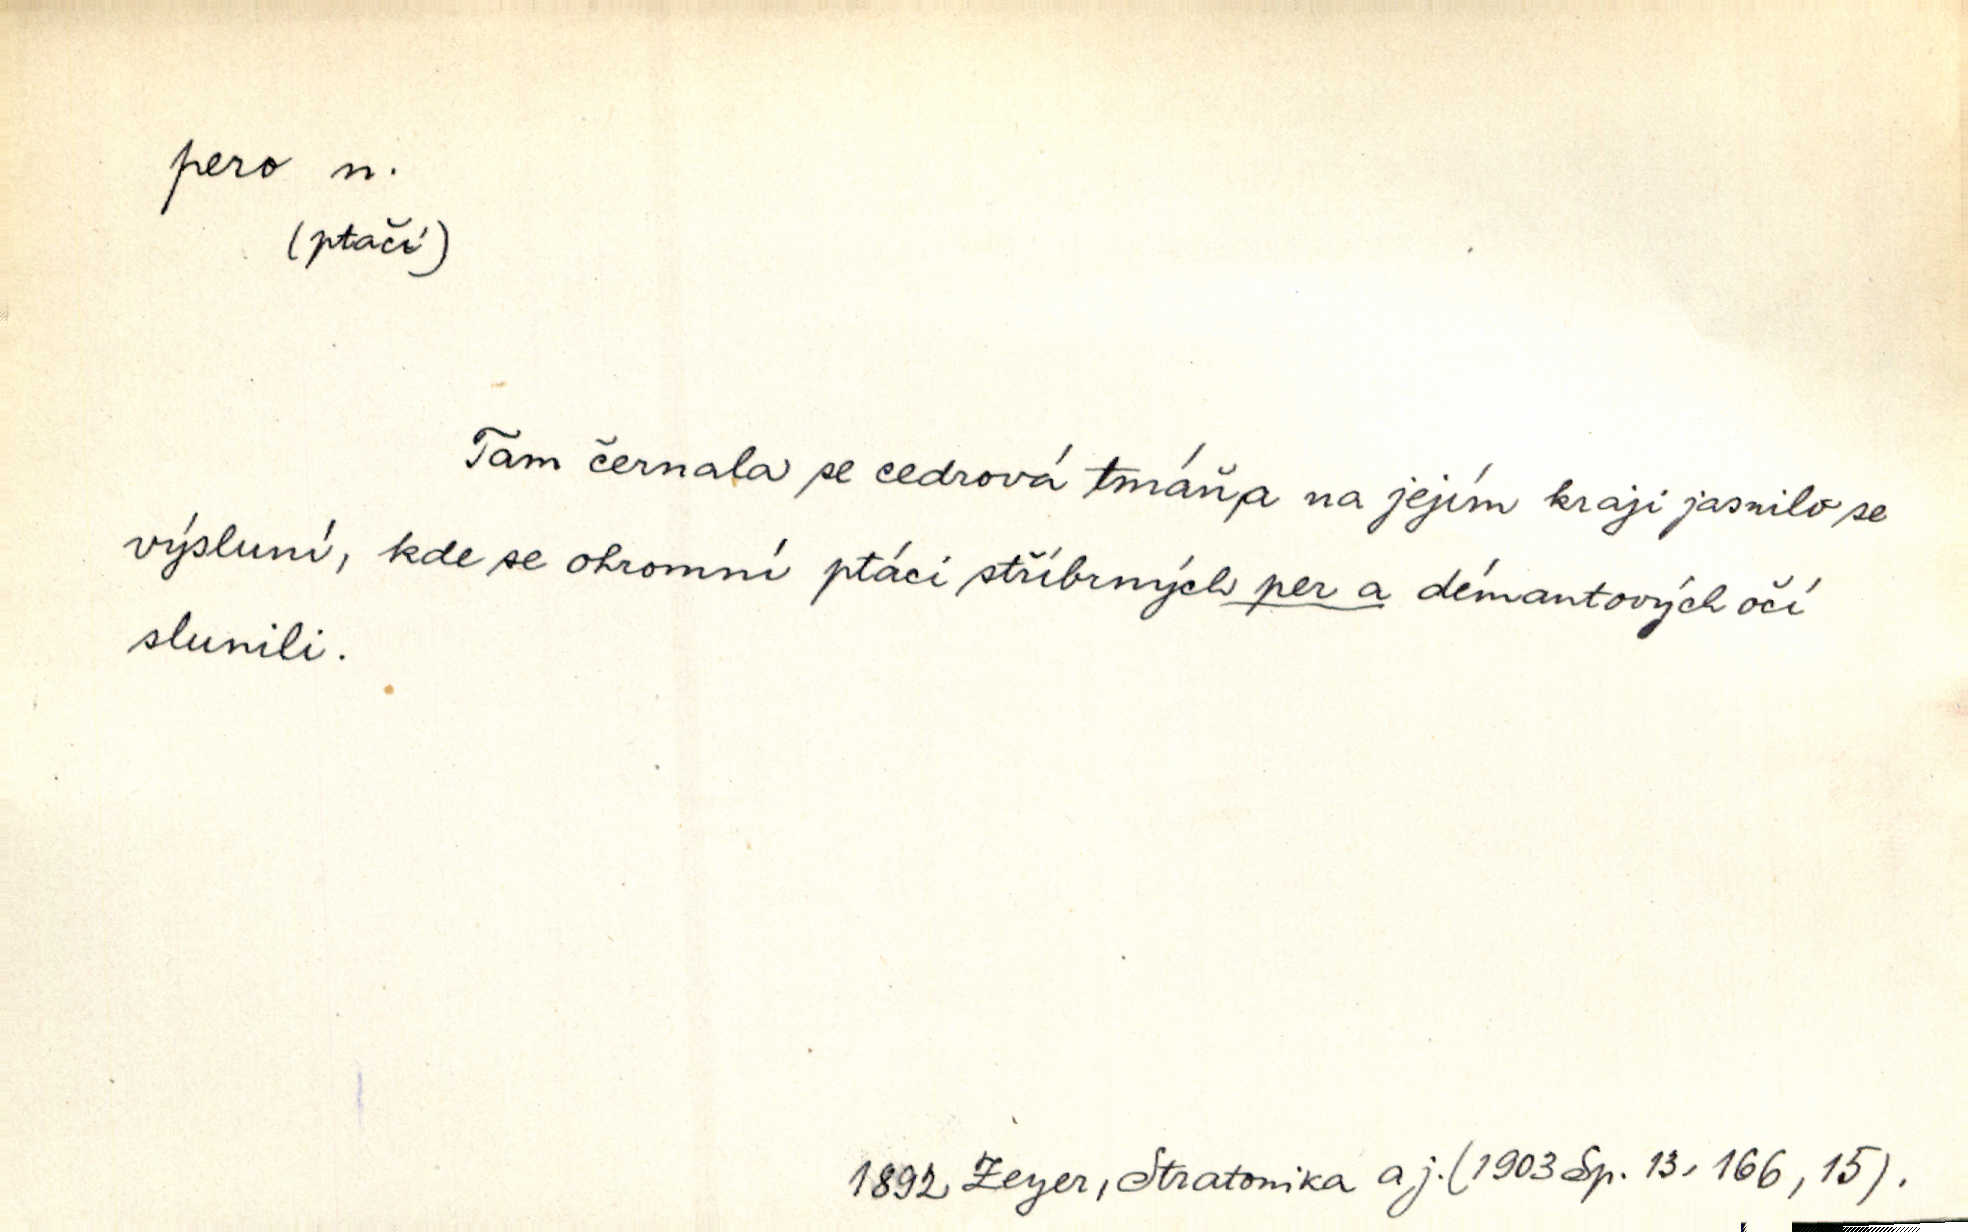 pero n.
(ptačí)
Tam černala se cedrová tmáň, a na jejím kraji jasnilo se
výsluní, kde se ohromní ptáci stříbrných per a démantových očí
slunili.
1892 Zeyer, Stratonika a j. (1903 Sp. 13, 166, 15).